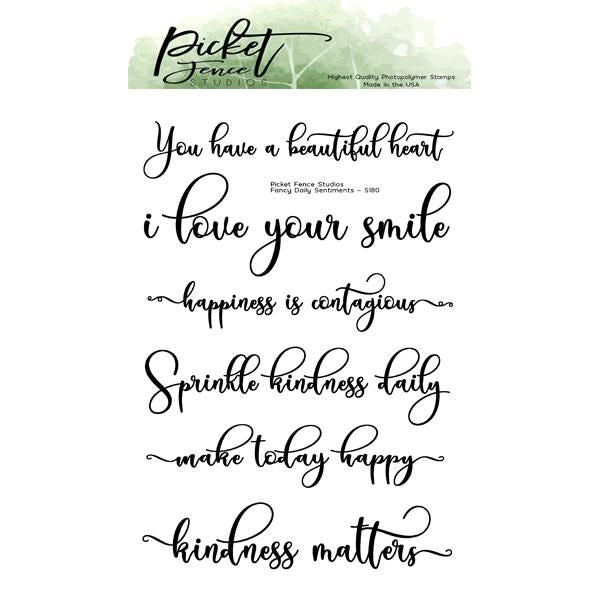 Picket
Fence
STUDIOS
Highest Quality Photopolymer Stamps
Made in the USA
You have a beautiful heart
Picket Fence Studios
Fancy Daily Sentiments - S180
i love your smile
happiness is contagious
Sprinkle kindness daily
make today happy
kindness matters